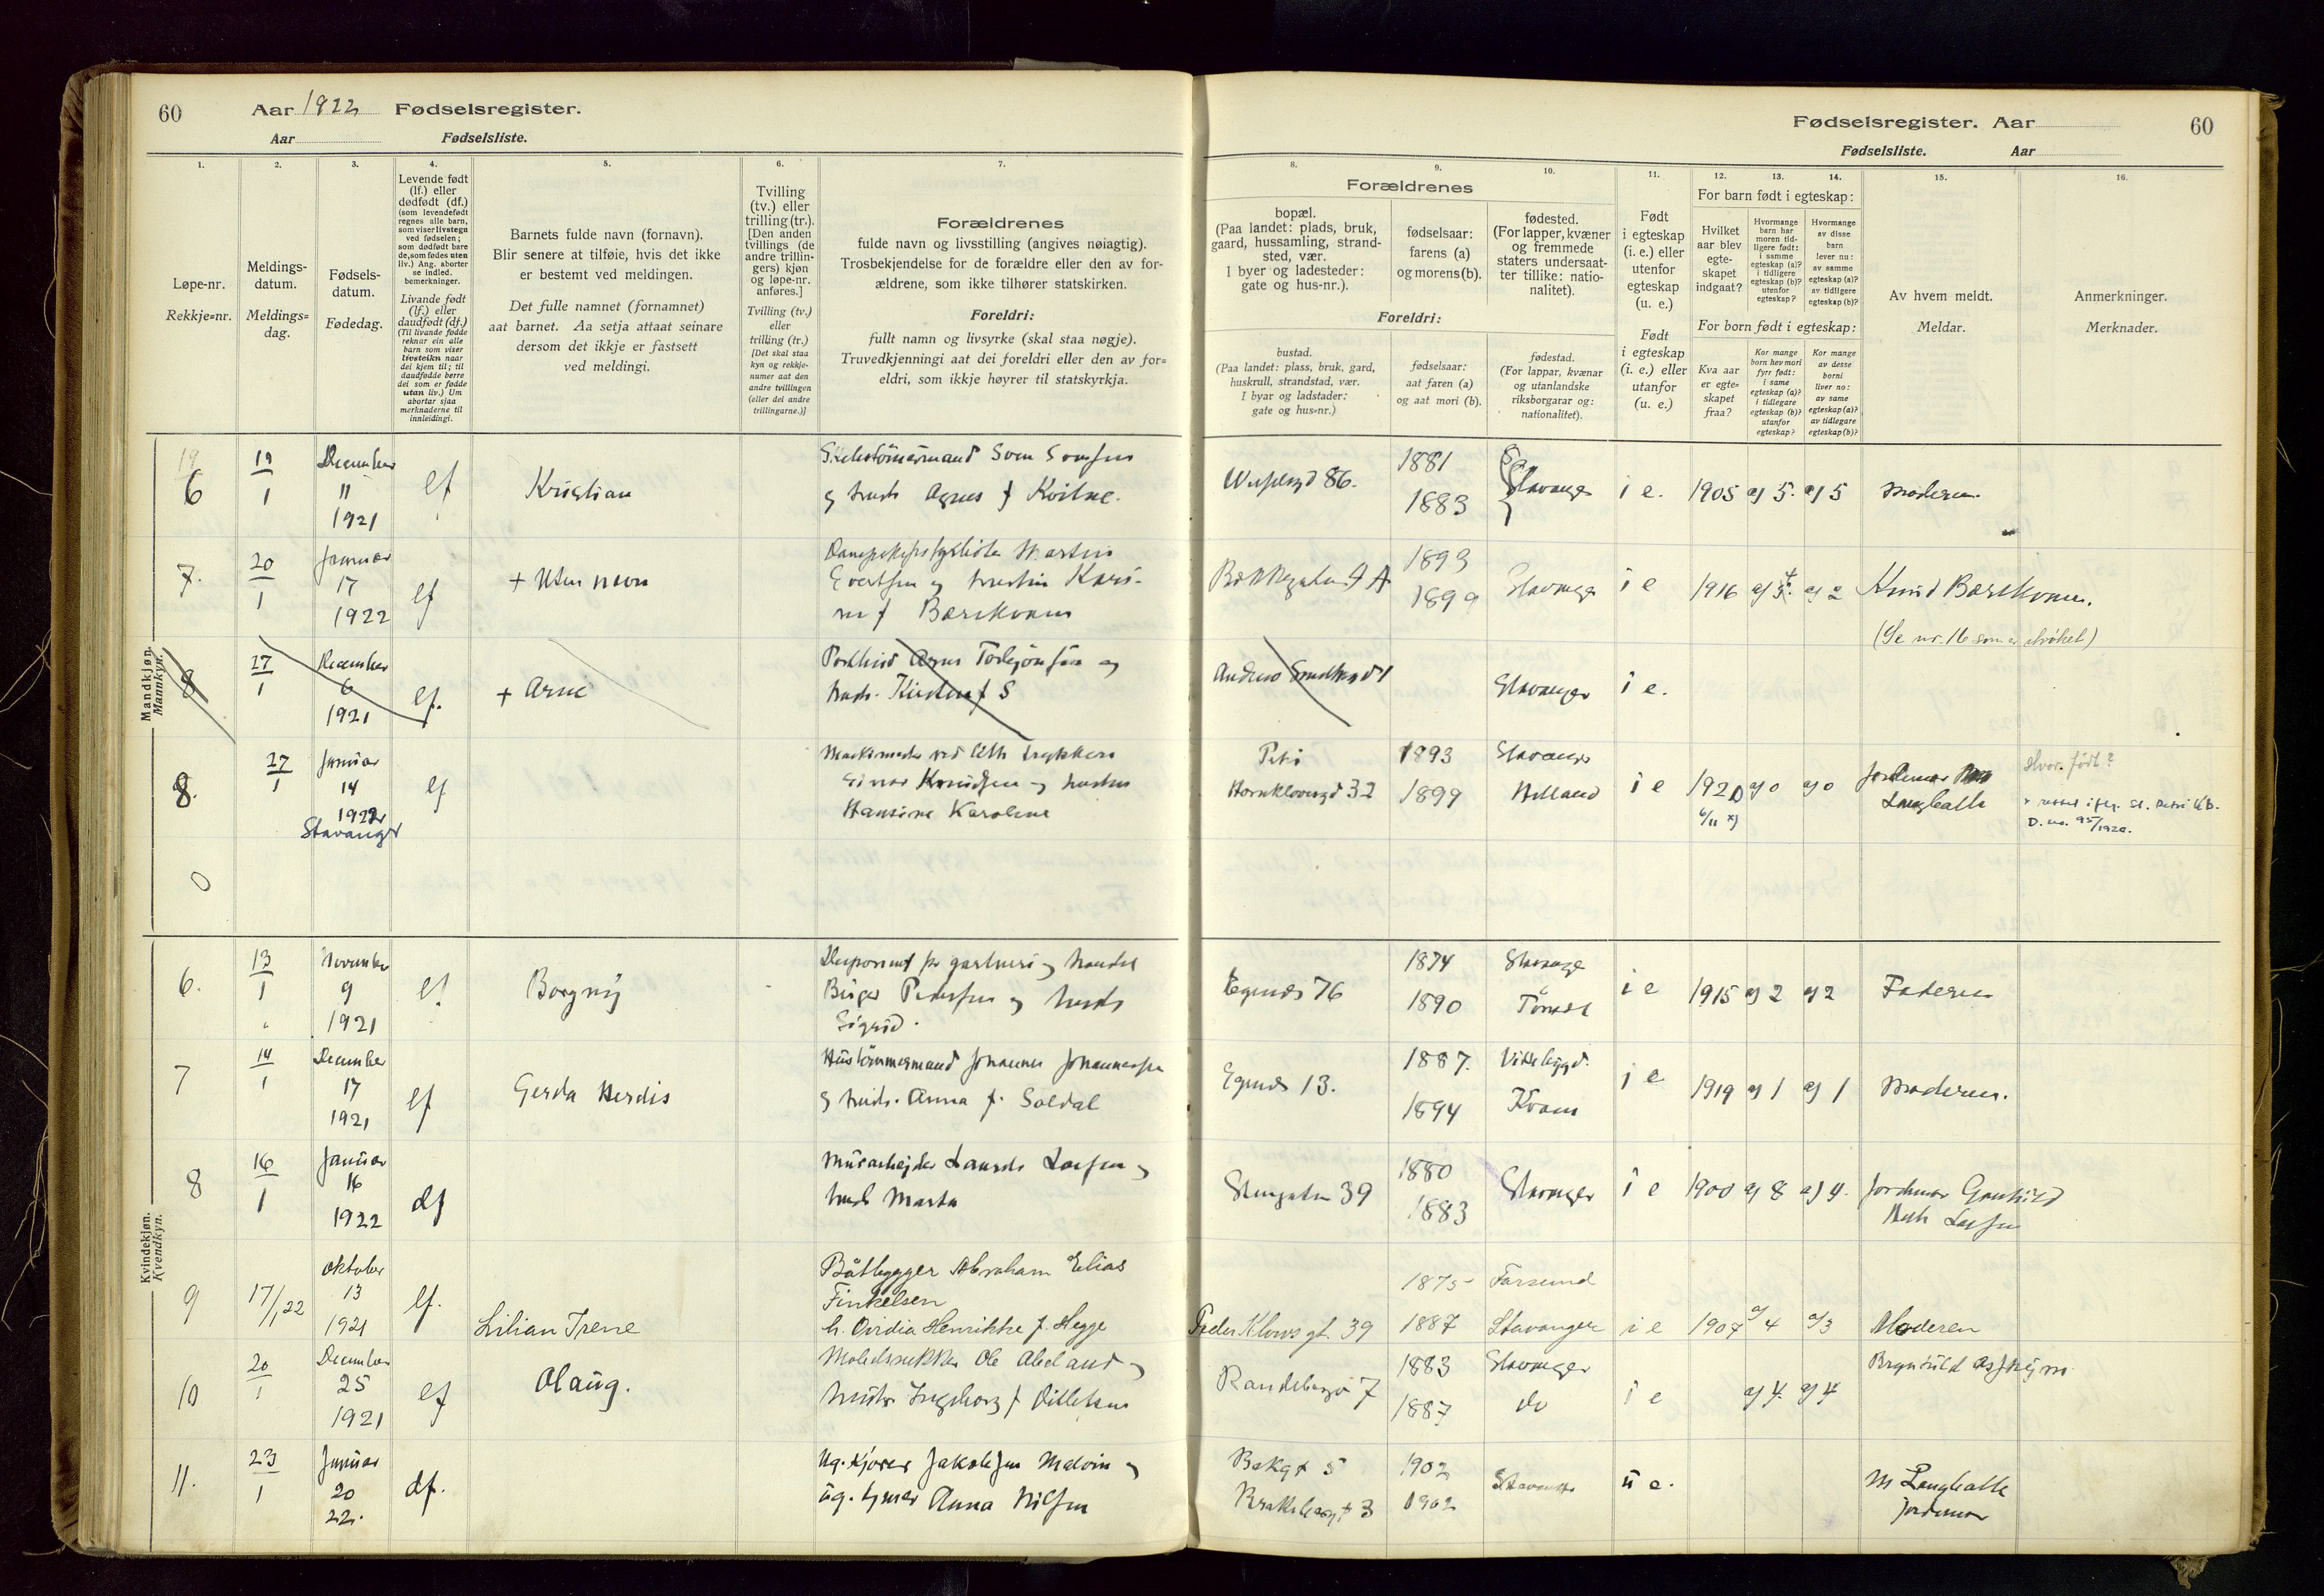 60
Aar 1922 Fødselsregister.
Aar Fødselsliste.
1.
2.
3.
4.
5.
6.
7.
Løpe-nr.
Rekkje=nr.
Meldings-
datum.
Meldings=
dag.
Fødsels-
datum.
Fødedag.
Levende født
(lf.) eller
dødfødt (df.)
(som levendefødt
regnes alle barn,
som viser livstegn
ved fødselen;
som dødfødt bare
de, som fødes uten
liv.) Ang. aborter
se indled.
bemerkninger.
Livande født
(lf.) eller
daudfødt (df.)
(Til livande fødde
reknar ein alle
barn som viser
livsteikn naar
dei kjem til; til
daudfødde berre
dei som er fødde
utan liv.) Um
abortar sjaa
merknaderne til
innleidingi.
Barnets fulde navn (fornavn).
Blir senere at tilføie, hvis det ikke
er bestemt ved meldingen.
Det fulle namnet (fornamnet)
aat barnet. Aa setja attaat seinare
dersom det ikkje er fastsett
ved meldingi.
Tvilling
(tv.) eller
trilling (tr.).
[Den anden
tvillings (de
andre trillin-
gers) kjøn
og løpe-nr.
anføres.]
Tvilling (tv.)
eller
trilling (tr.)
[Det skal staa
kyn og rekkje-
numer aat den
andre tvillingen
(eller dei andre
trillingarne.)]
Forældrenes
fulde navn og livsstilling (angives nøiagtig).
Trosbekjendelse for de forældre eller den av for-
ældrene, som ikke tilhører statskirken.
Foreldri:
fullt namn og livsyrke (skal staa nøgje).
Truvedkjenningi aat dei foreldri eller den av for=
eldri, som ikkje høyrer til statskyrkja.
Mandkjøn.
Mannkyn.
19
6
19
1
December
11
1921
lf
Kristian
Sven
Agnes f Kvilne.
7.
20
1
Januar
17
1922
lf
+ Uten navn
Martin
Evertsen og hustru
f Barekvam
8
27
1
December
6
1921
lf.
+ Arne
og
f S
8.
27
1
Januar
14
1922
Stavanger
lf
Einar Knudsen og hustru
Hansine Karoline
0
Kvindekjøn.
Kvendkyn.
6.
13
1
November
9
1921
lf
Borgny
Disponent for gartneri og handel
Birger Pedersen og hustr
Sigrid.
7
14
1
December
17
1921
lf
Gerda Herdis
Hustømmermand Johannes Johannessen
og hustr. Anna f. Soldal
8
16
1
Januar
16
1922
df
Murarbejder Laurits Larsen og
hustr Marta
9
17/1 22
Oktober
13
1921
lf.
Lilian Irene
Båtbygger Abraham Elias
Finkelsen
h. Ovidia Henrikke f. Hegge
10
20
1
December
25
1921
lf
Olaug.
Ole Abeland og
hustr Ingeborg f
11.
23
1
Januar
20
22.
df.
ug. kjører Jakobsen Malvin og
Anna Nilsen
Fødselsregister. Aar
60
Fødselsliste. Aar
8.
9.
10.
11.
12.
13.
14.
15.
16.
Forældrenes
bopæl.
(Paa landet: plads, bruk,
gaard, hussamling, strand-
sted, vær.
I byer og ladesteder:
gate og hus-nr.).
fødselsaar:
farens (a)
og morens (b).
fødested.
(For lapper, kvæner
og fremmede
staters undersaat-
ter tillike: natio-
nalitet).
Foreldri:
bustad.
(Paa landet: plass, bruk, gard,
huskrull, strandstad, vær.
I byar og ladstader:
gate og hus-nr.)
fødselsaar:
aat faren (a)
og aat mori (b).
fødestad.
(For lappar, kvænar
og utanlandske
riksborgarar og:
nationalitet).
Født
i egteskap
(i. e.) eller
utenfor
egteskap
(u. e.)
Født
i egteskap
(i. e.) eller
utanfor
(u. e.)
For barn født i egteskap:
Hvilket
aar blev
egte-
skapet
indgaat?
Hvormange
barn har
moren tid-
ligere født:
i samme
egteskap (a)?
i tidligere
egteskap (b)?
utenfor
egteskap?
Hvormange
av disse
barn
lever nu:
av samme
egteskap (a)?
av tidligere
egteskap (b)?
For born født i egteskap:
Kva aar
er egte=
skapet
fraa?
Kor mange
born hev mori
fyrr født:
i same
egteskap (a)?
i tidlegare
egteskap (b)?
utanfor
egteskap?
Kor mange
av desse
borni
liver no:
av same
egteskap (a)?
av tidlegare
egteskap (b)?
Av hvem meldt.
Meldar.
Anmerkninger.
Merknader.
86.
1881
1883
Stavanger
i e.
1905
a) 5.
a) 5
Moderen
1893
1899
Stavanger
i e
1916
a)
a) 2
Knud Barekvam.
(Se nr. 16 som er strøket)
Stavanger
i e.
Petri
Hornklovesgd 32
1893
1899
Stavanger
Hetland
i e
1920
6/11 x)
a) 0
a) 0
Jordmor
Langhalle
Hvor født?
D. no. 95/1920.
Egends 76
1874
1890
Stavange
i e
1915
a) 2
a) 2
Faderen
Egends 13.
1887.
1894
Vikebygd.
Kvam
i e
1919
a) 1
a) 1
Moderen.
Stengaten 39
1880
1883
Stavanger
i e
1900
a) 8
a) 4.
Jordmor Gunhild
Larsen
Peder Klows gt. 39
1875
1887
Farsund
Stavanger
i e
1907
a) 4
a) 3
Moderen
7
1883
1887
Stavanger
do
i e
a) 4.
a) 4
Brynhild
Bakgt 5
3
1902
1902
Stavanger
u e.
M Langhalle
jordmor